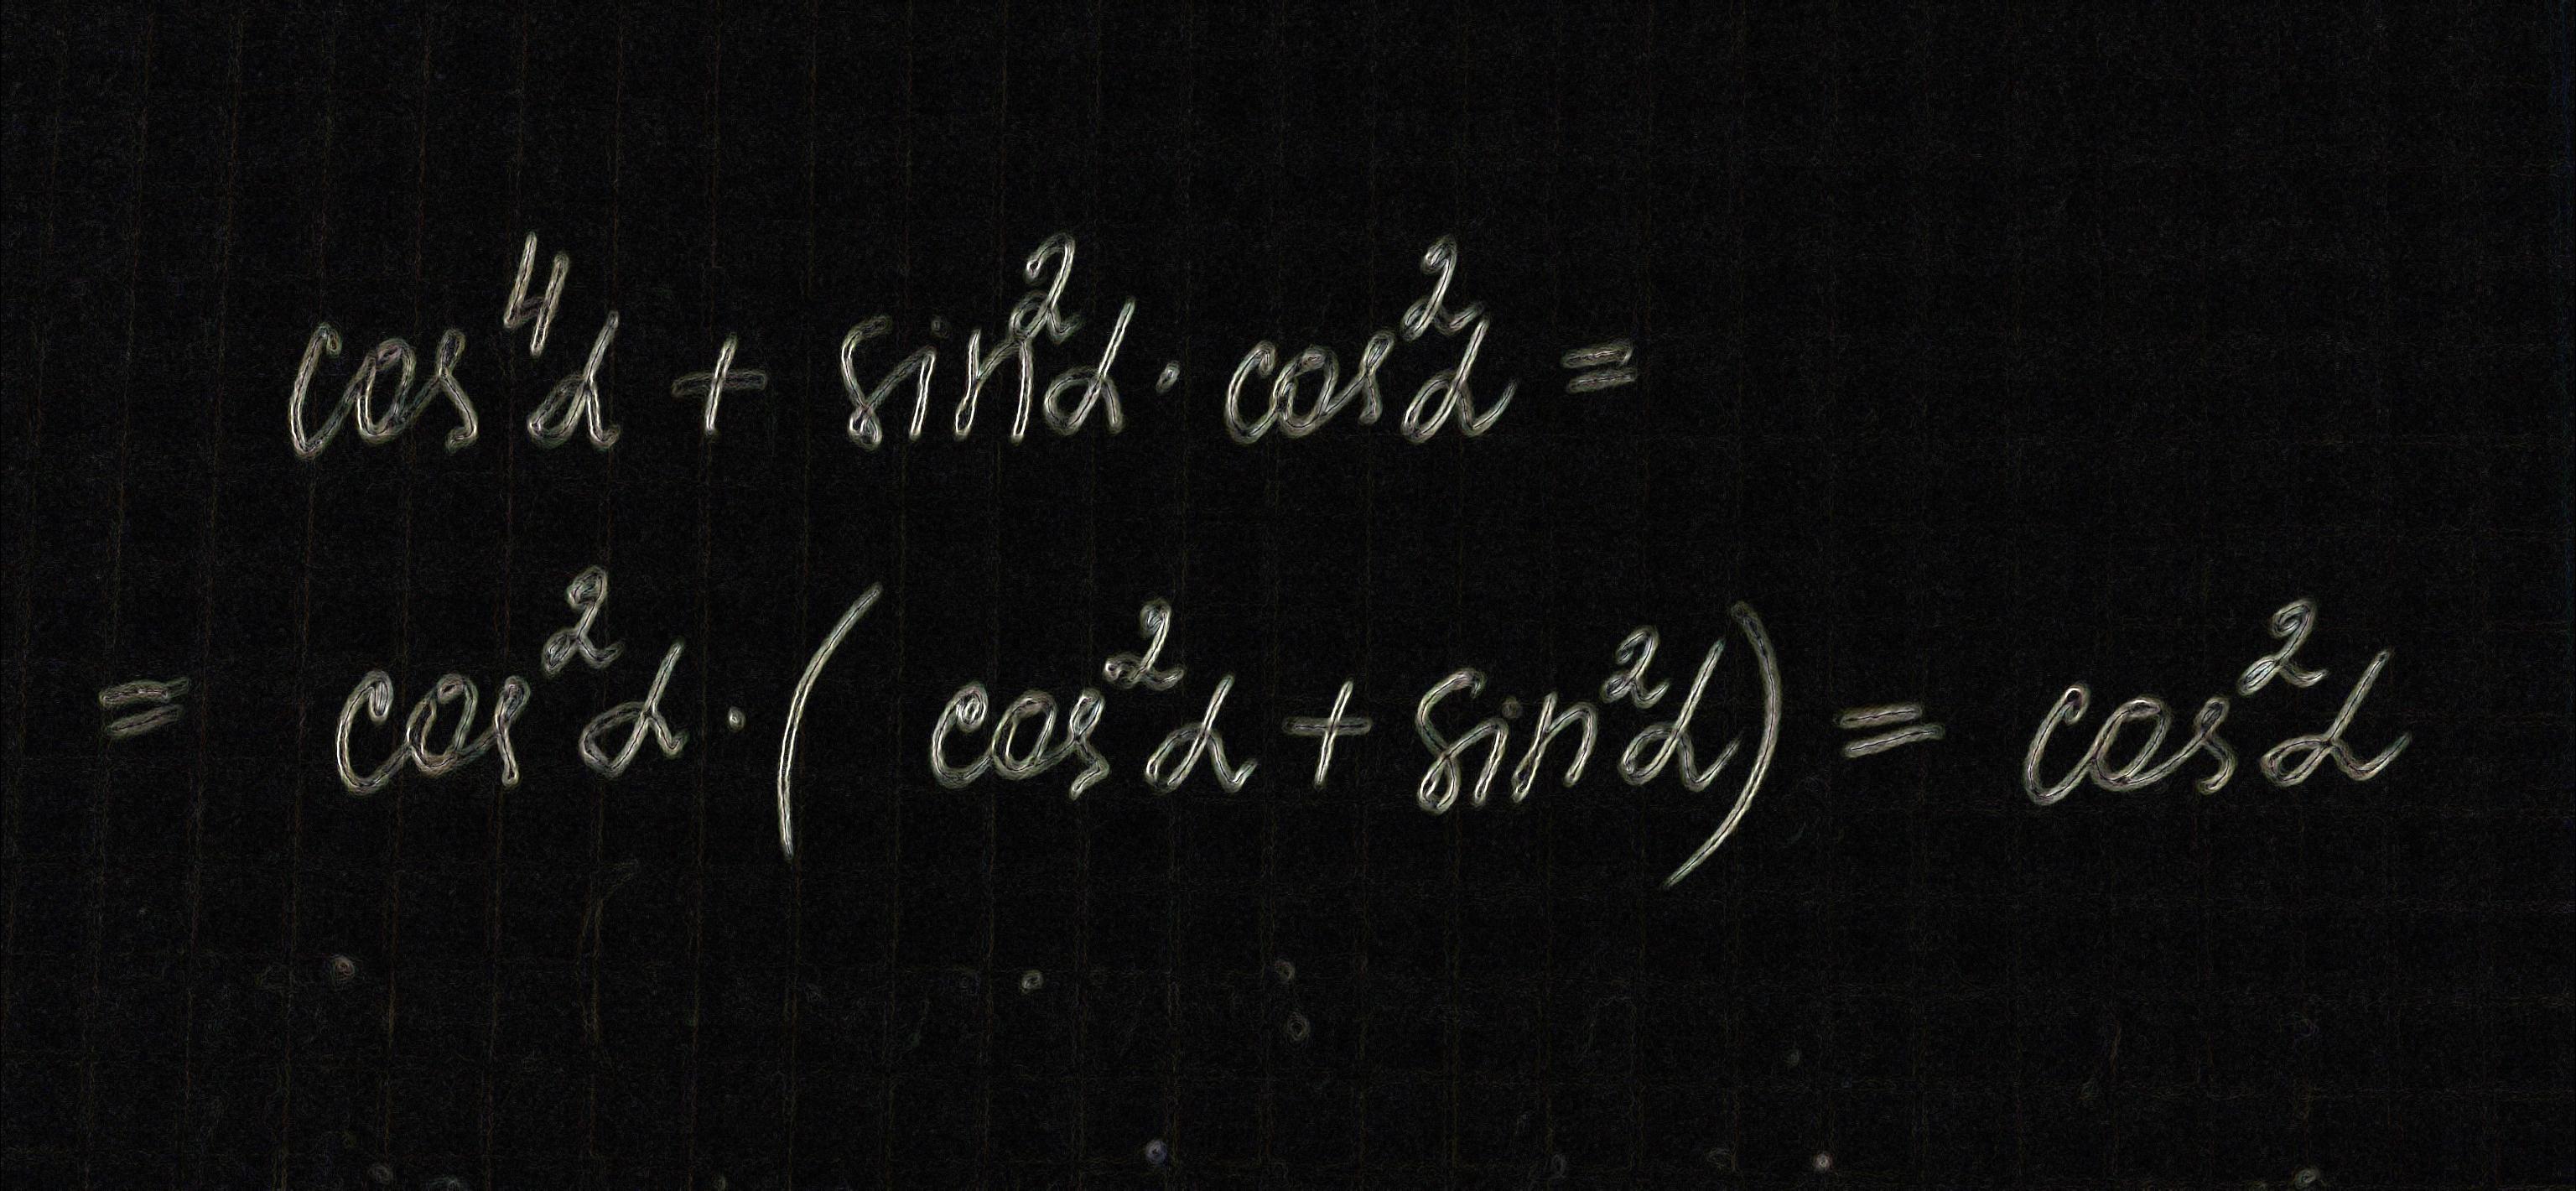 cos⁴α + sin²α · cos²α =
= cos²α · ( cos²α + sin²α) = cos²α